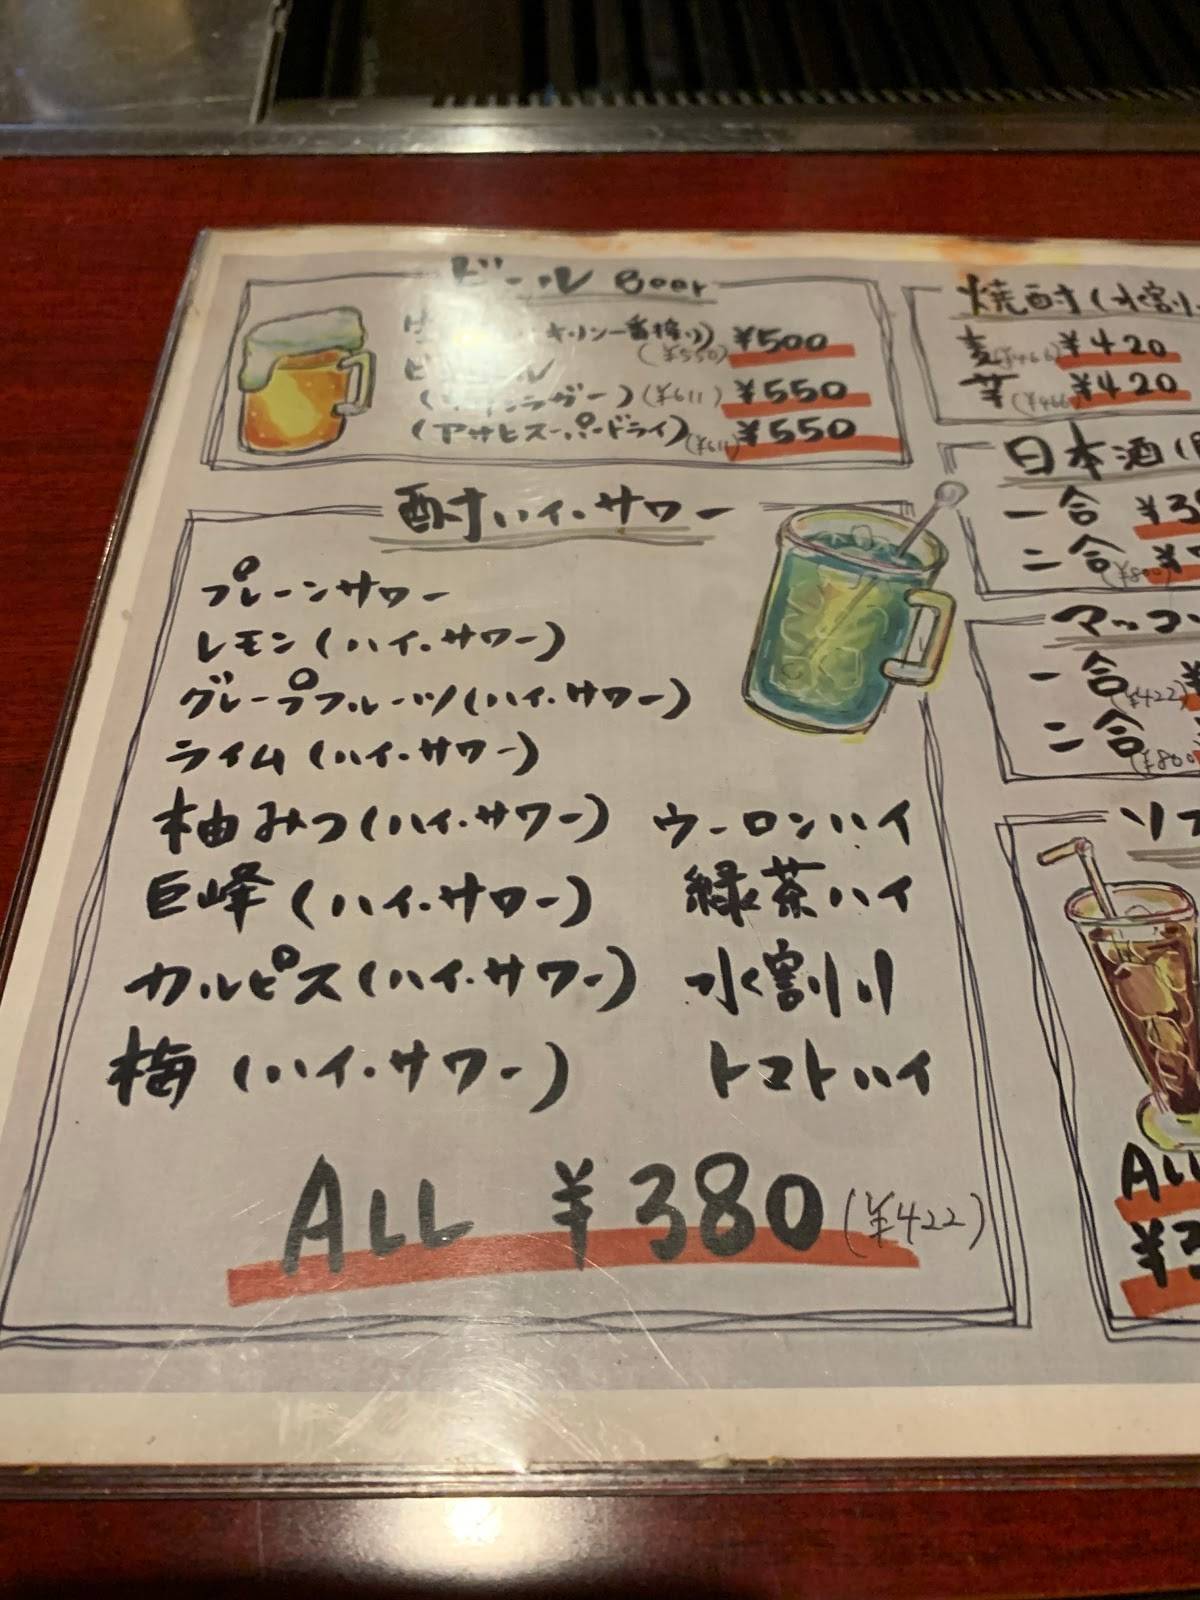 ビール Beer
キリン一番搾り) ¥500
(¥550)
(¥611) ¥550
(アサヒスーパードライ) (¥611) ¥550
酎ハイ・サワー
プレーンサワー
レモン (ハイ・サワー)
グレープフルーツ (ハイ・サワー)
ライム (ハイ・サワー)
柚みつ (ハイ・サワー)
巨峰 (ハイ・サワー)
カルピス (ハイ・サワー)
梅 (ハイ・サワー)
ウーロンハイ
緑茶ハイ
水割り
トマトハイ
ALL ¥380 (¥422)
焼酎 (水割り
麦 (¥466) ¥420
芋 (¥466) ¥420
日本酒
一合
二合 (¥800)
マッコ
一合 (¥422)
二合 (¥800)
ソフ
ALL
¥3